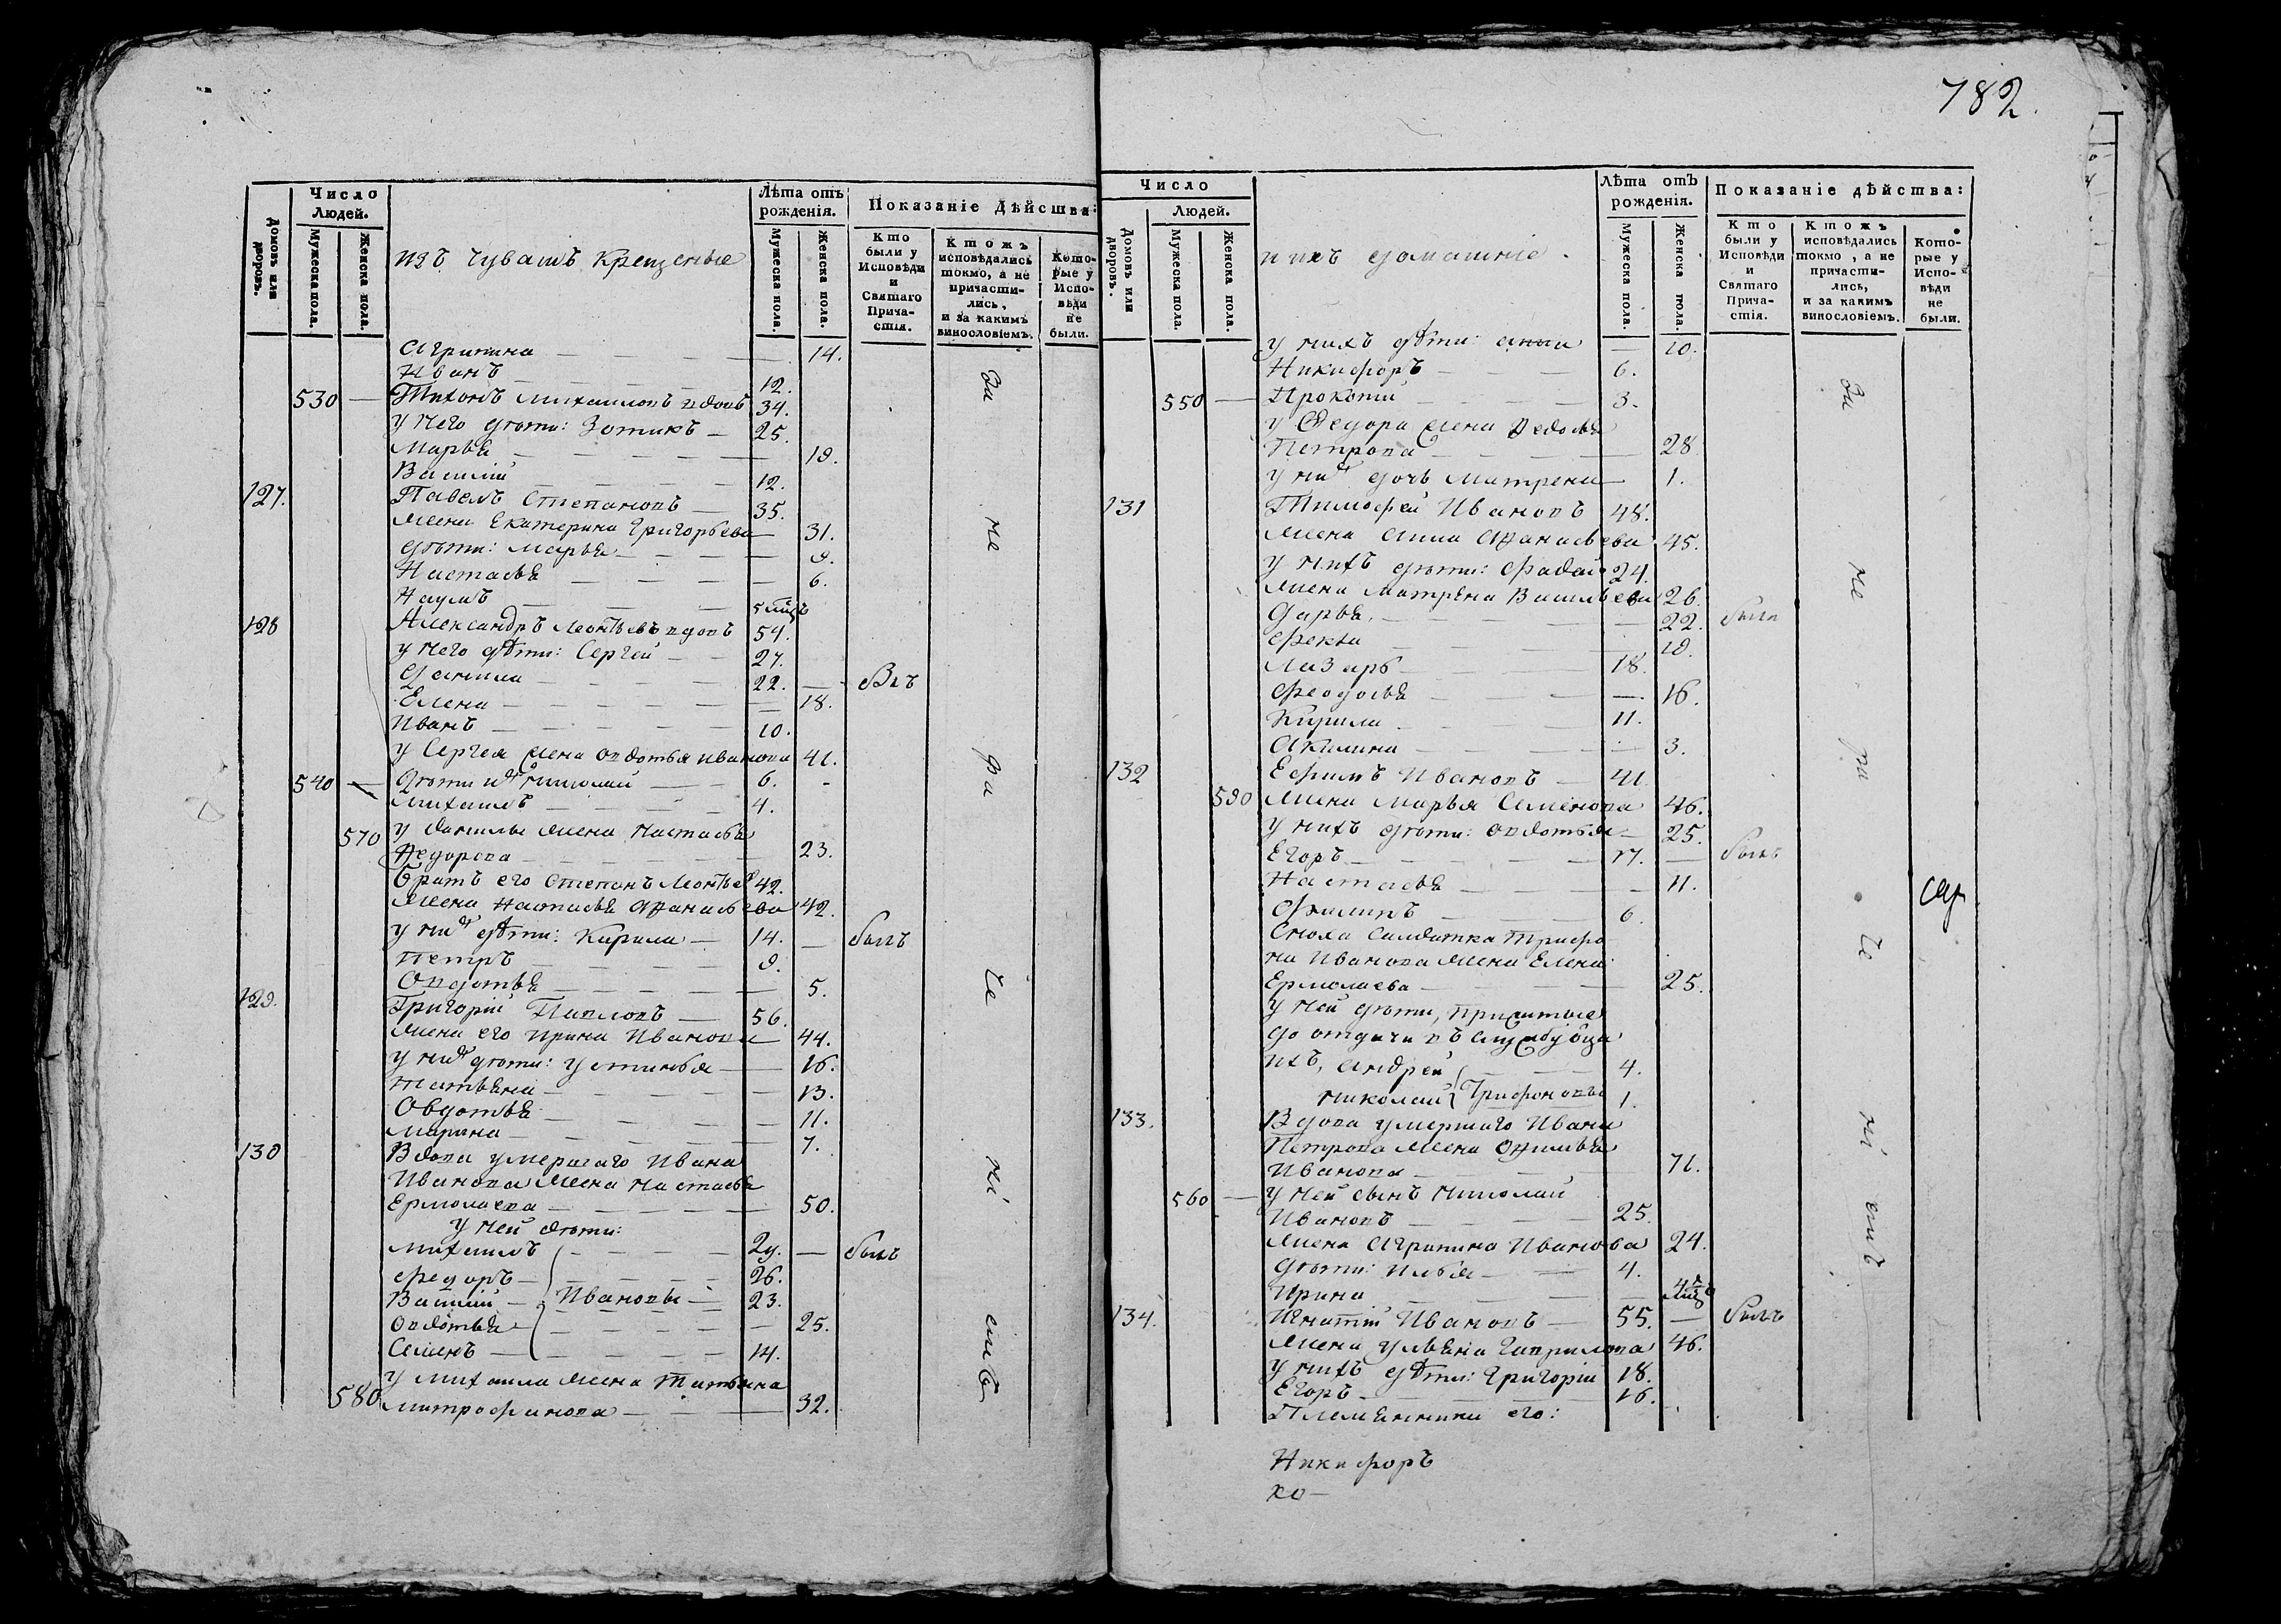 782.
Число
Людей.
Домовъ или дворовъ.
Мужеска пола.
Женска пола.
изъ чувашъ крещеные
Лѣта отъ рожденія.
Мужеска пола.
Женска пола.
Показаніе Дѣйства:
Кто были у Исповѣди и Святаго Прича-стія.
Ктожъ исповѣдались токмо, а не причасти-лись, и за какимъ винословіемъ.
Кото-рые у Испо-вѣди не были.
Агрипина — 14.
Иванъ — 12.
530 — Тихонъ Михаиловъ вдовъ 34.
у него дѣти: Зотикъ — 25.
Марья — 19.
Василій — 12.
127. Павелъ Степановъ — 35.
жена Екатерина Григорьева — 31.
дѣти: Марья — 9.
Настасья — 6.
Наумъ —
128 Александръ Леонтьевъ вдовъ 54.
у него дѣти: Сергей — 27.
Данила — 22. —
Елена — 18.
Иванъ — 10.
у Сергея жена Овдотья Иванова 41.
540 — Николай — 6.
Михаилъ — 4.
570 у Данилы жена Настасья
Федорова — 23.
братъ его Степанъ 42.
жена Настасья Афанасьева 42.
дѣти: Кирила — 14. — былъ
Петръ — 9.
Овдотья — 5.
129. Григорій Павловъ — 56.
жена его Ирина Иванова — 44.
дѣти: Устинья — 16.
Татьяна — 13.
Овдотья — 11.
Марина — 7.
130 Вдова умершаго Ивана
Иванова жена Настасья
Ермолаева — 50.
у ней дѣти:
Михаилъ — 29. — былъ
Федоръ — 26.
Василій — Ивановы — 23.
Овдотья — 25.
Семенъ — 14.
у Михаила жена Татьяна
580 Митрофанова — 32.
за не ра че ні емъ
Число
Людей.
Домовъ или дворовъ.
Мужеска пола.
Женска пола.
и ихъ домашніе.
Лѣта отъ рожденія.
Мужеска пола.
Женска пола.
Показаніе дѣйства:
Кто были у Исповѣди и Святаго Прича-стія.
Ктожъ исповѣдались токмо, а не причасти-лись, и за какимъ винословіемъ.
Кото-рые у Испо-вѣди не были.
у нихъ дѣти: Анна — 10.
Никифоръ — 6.
550 — Прокопій — 3.
у Федора жена Федосья
Петрова — 28
дочь Матрена — 1.
131 Тимофей Ивановъ 48.
жена Анна Афанасьева 45.
у нихъ дѣти: Фадей 24.
жена Матрена Васильева 26.
Дарья — 22. была
Фекла — 19.
Лазарь — 18.
Феодосья — 16.
Кирила — 11.
Акилина — 3.
132 Ефимъ Ивановъ — 41
590 жена Марья Семенова 46.
у нихъ дѣти: Овдотья — 25.
Егоръ — 17. — былъ
Настасья — 11.
Филипъ — 6.
Сноха салдатка Трифо
на Иванова жена Елена
Ермолаева — 25.
у ней дѣти, прижитые
до отдачи въ службу отца
ихъ, Андрей — 4.
Николай Трифоновы 1.
133. Вдова умершаго Ивана
Петрова жена
Иванова — 71.
560 — у ней сынъ Николай
Ивановъ — 25.
жена Агрипина Иванова 24.
дѣти: Илья — 4.
Ирина —
134. Игнатій Ивановъ — 55. — былъ
жена Ульяна Гаврилова 46.
у нихъ дѣти: Григорій 18.
Егоръ — 16.
Племянники его:
за не ра че ні емъ
Никифоръ
хо—